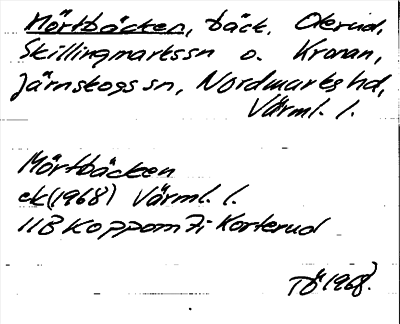 Mörtbäcken, bäck, Okerud,
Skillingmarkssn o. Kronan,
Järnskogssn, Nordmarks hd,
Värml. l.
Mörtbäcken
ek (1968) Värml. l.
11B Koppom 7i Korterud
TÖ 1968.